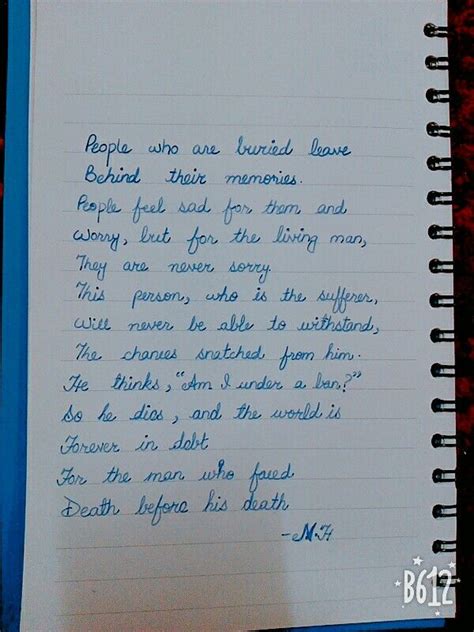 People who are buried leave
Behind their memories.
People feel sad for them and
Worry, but for the living man,
They are never sorry
This person, who is the sufferer,
Will never be able to withstand,
The chances snatched from him.
He thinks, "Am I under a ban?"
So he dies, and the world is
Forever in debt
For the man who faced
Death before his death
-M.H
B612